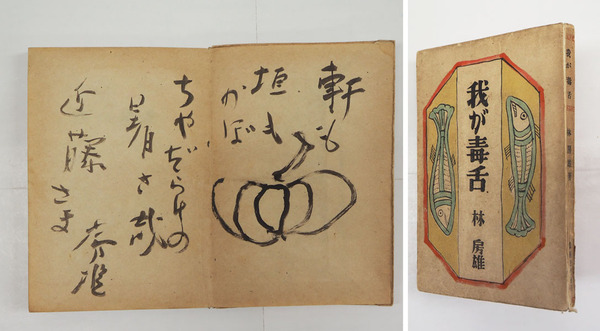 軒も
垣も
かぼ
ちやだらけの
暑さ哉
近藤さま
秀雄
我が毒舌
林房雄
我が毒舌
林房雄